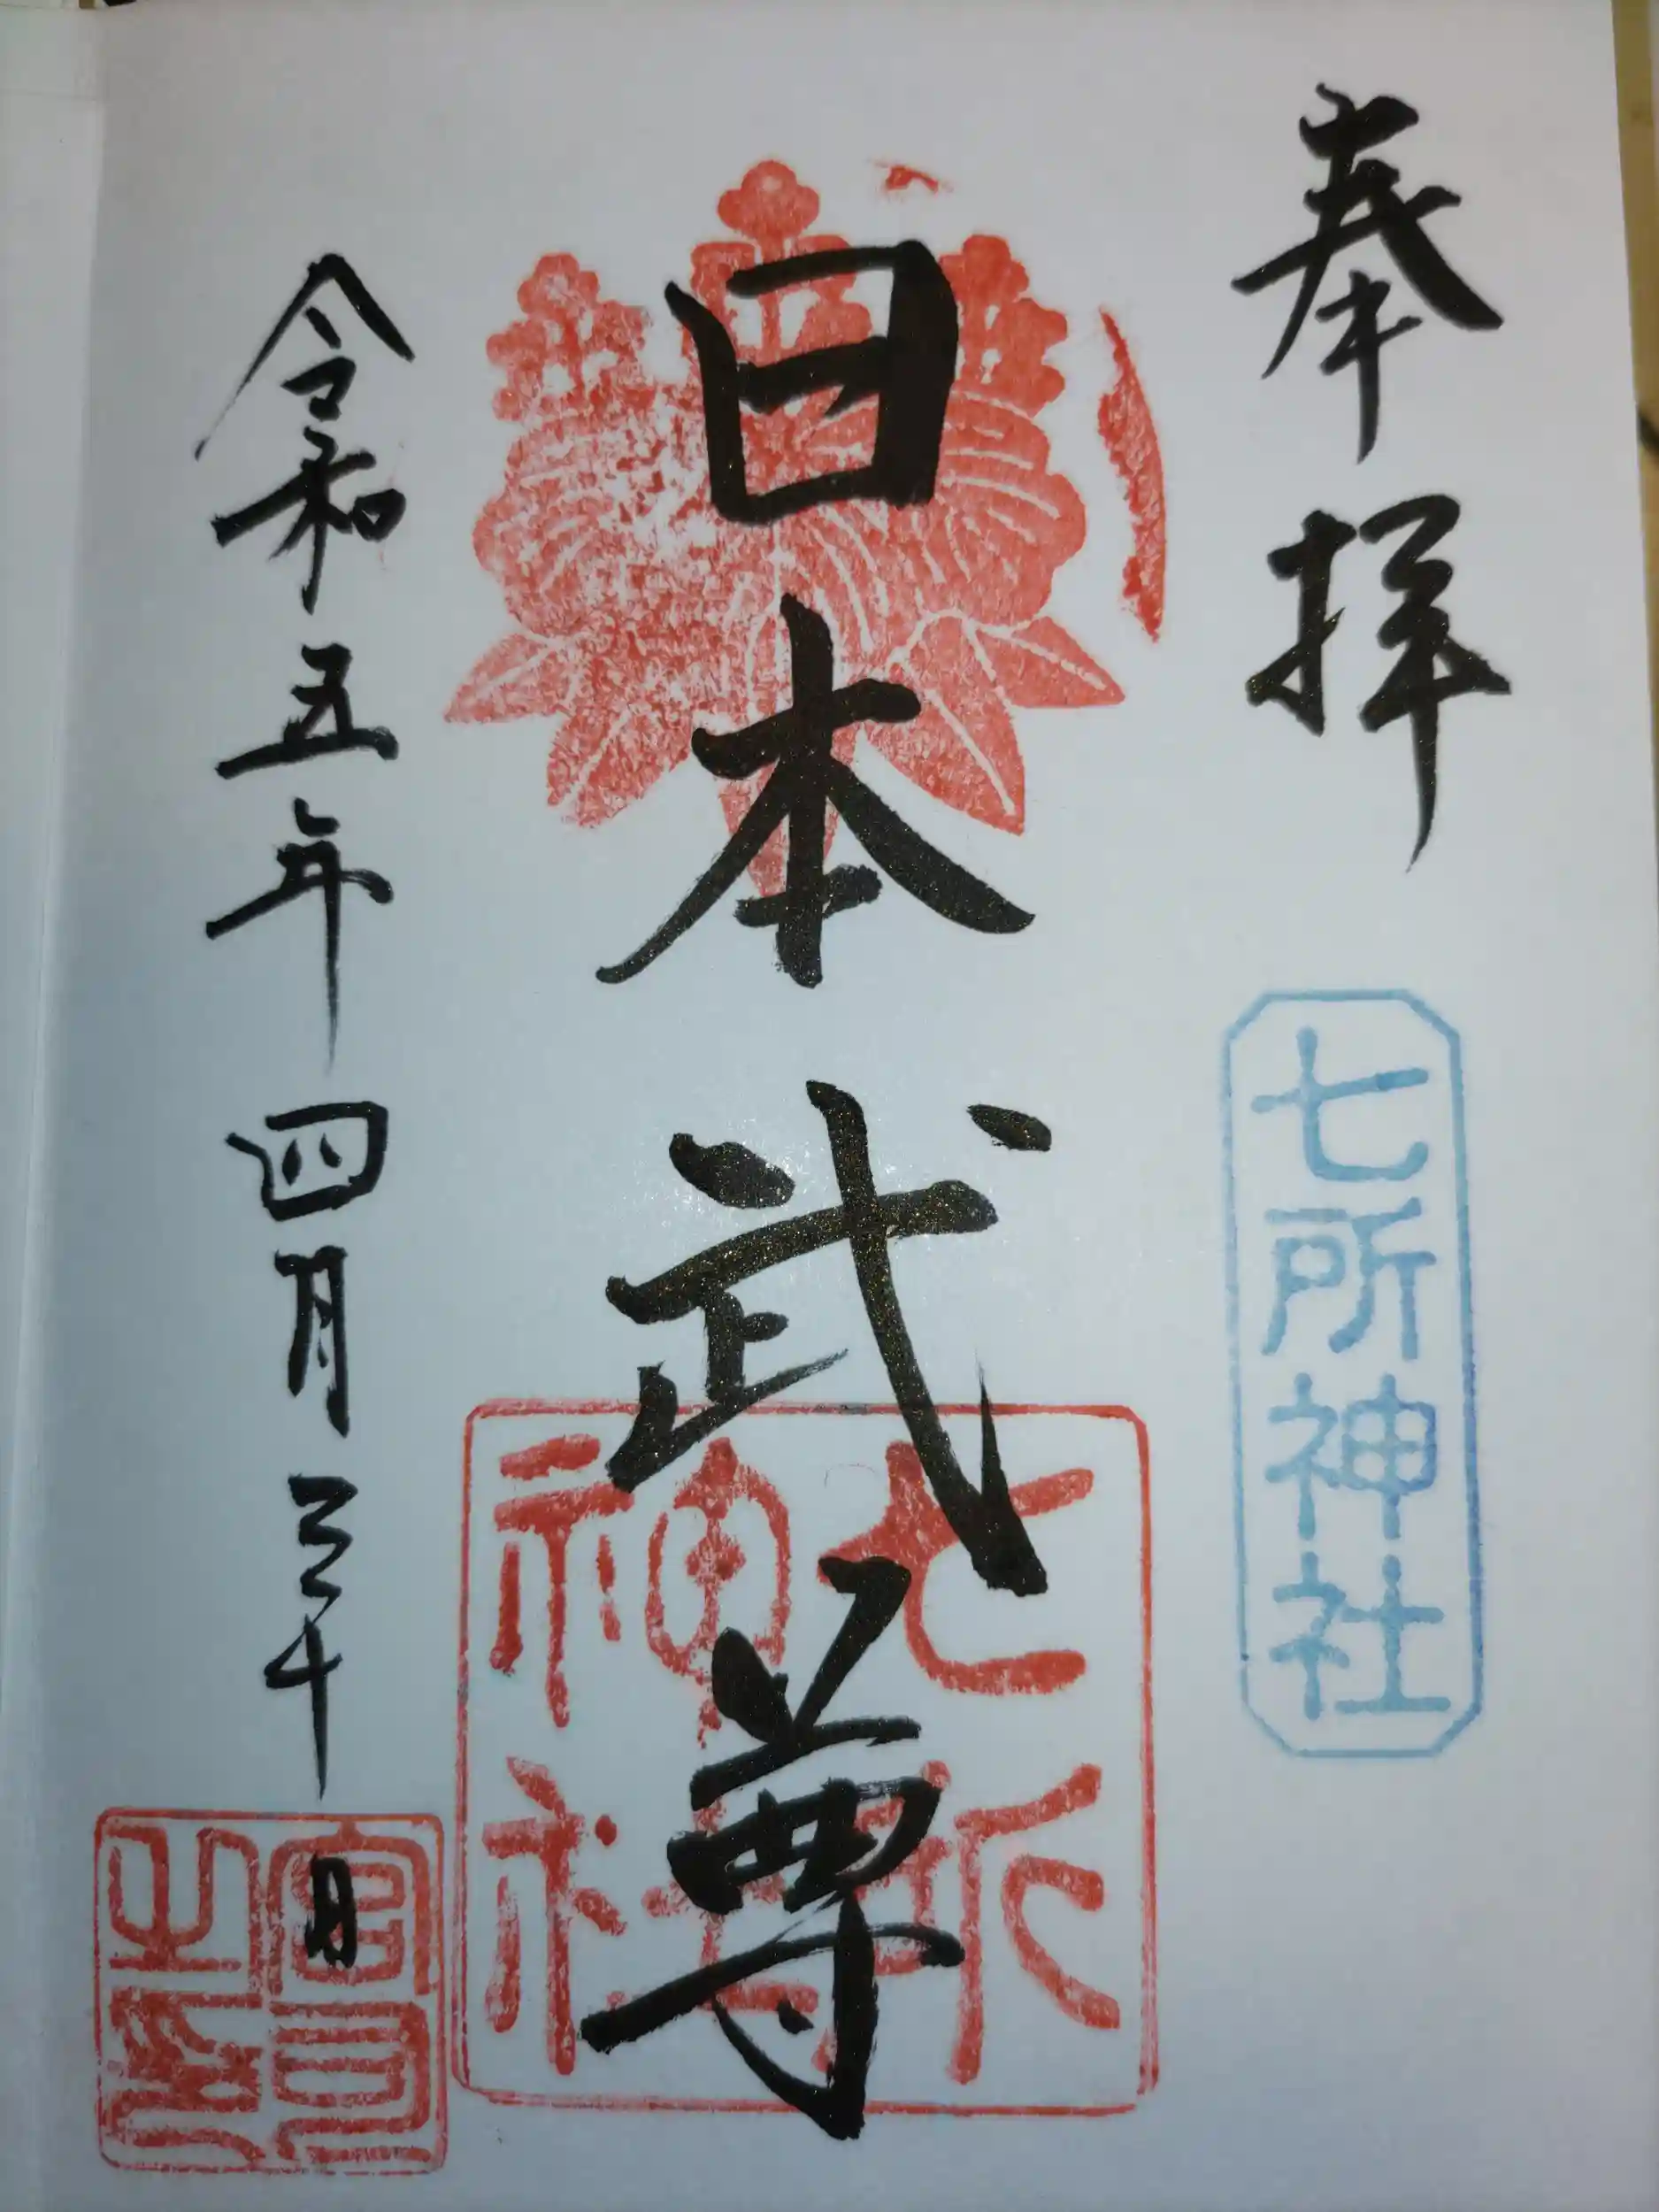 奉拝
七所神社
日本武尊
七所
神社
令和五年四月三十日
宮司
之印